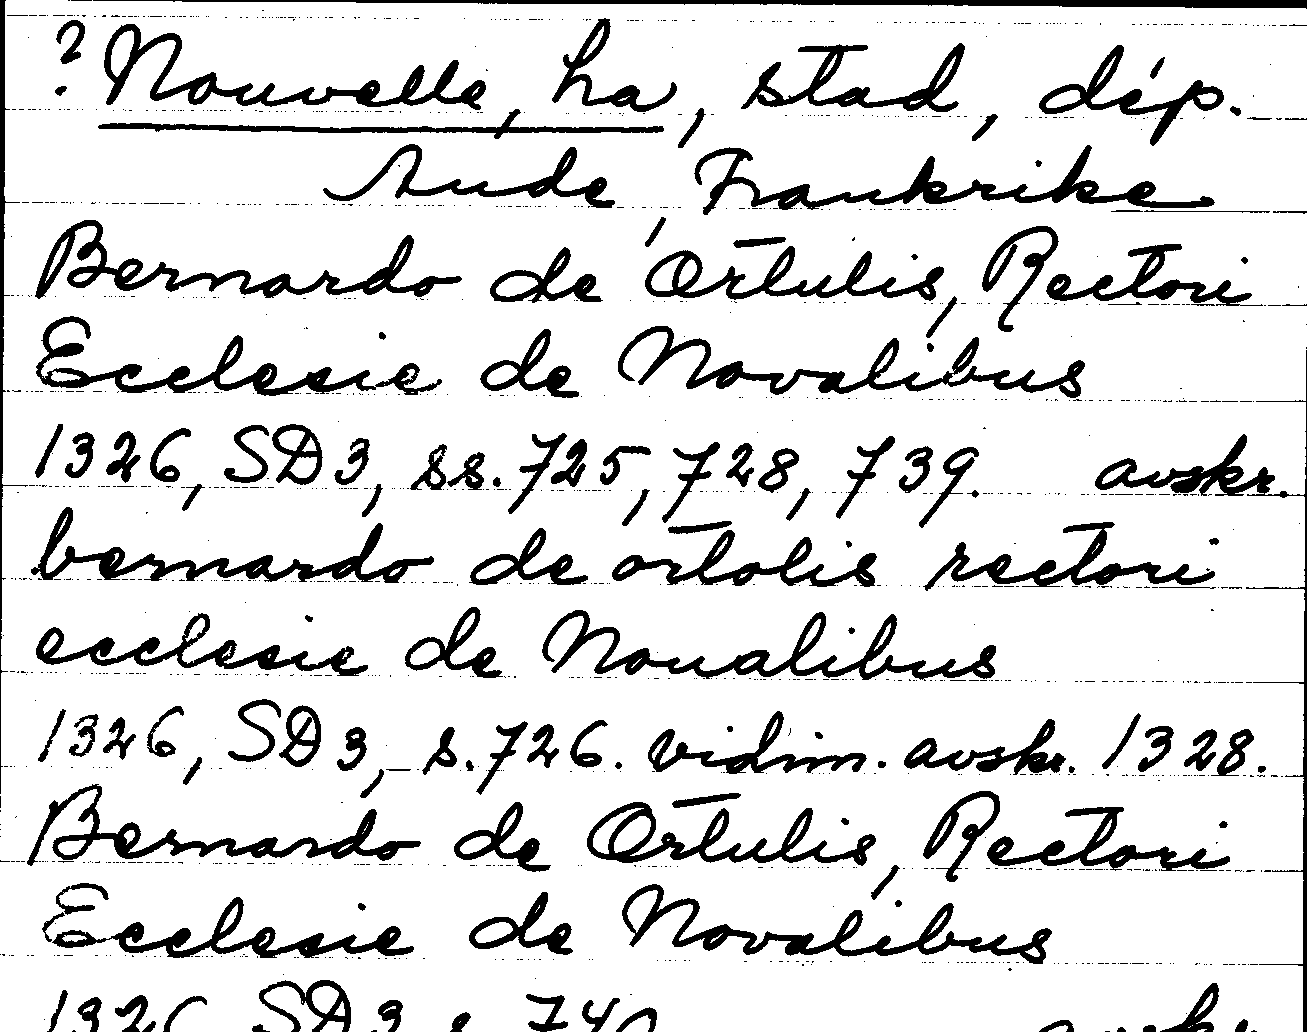 ? Nouvelle, La, stad, dép.
Aude, Frankrike
Bernardo de Ortulis, Rectori
Ecclesie de Novalibus
1326, SD3, ss. 725, 728, 739. avskr.
bernardo de ortolis rectori
ecclesie de Noualibus
1326, SD3, s. 726. vidim. avskr. 1328.
Bernardo de Ortulis, Rectori
Ecclesie de Novalibus
1326 SD3 s. 740 avskr.